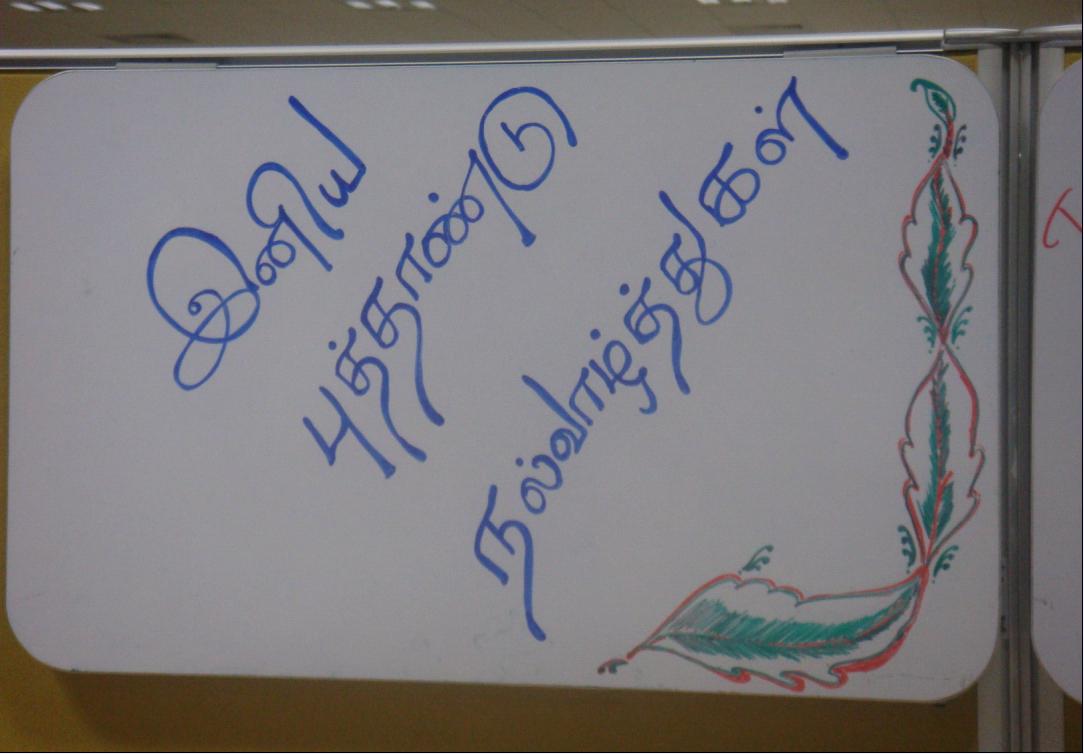 இனிய
புத்தாண்டு
நல்வாழ்த்துகள்